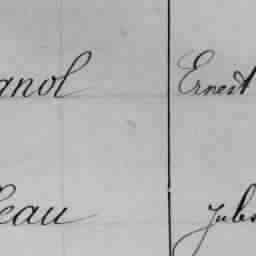 gnol Ernest
eau Jules